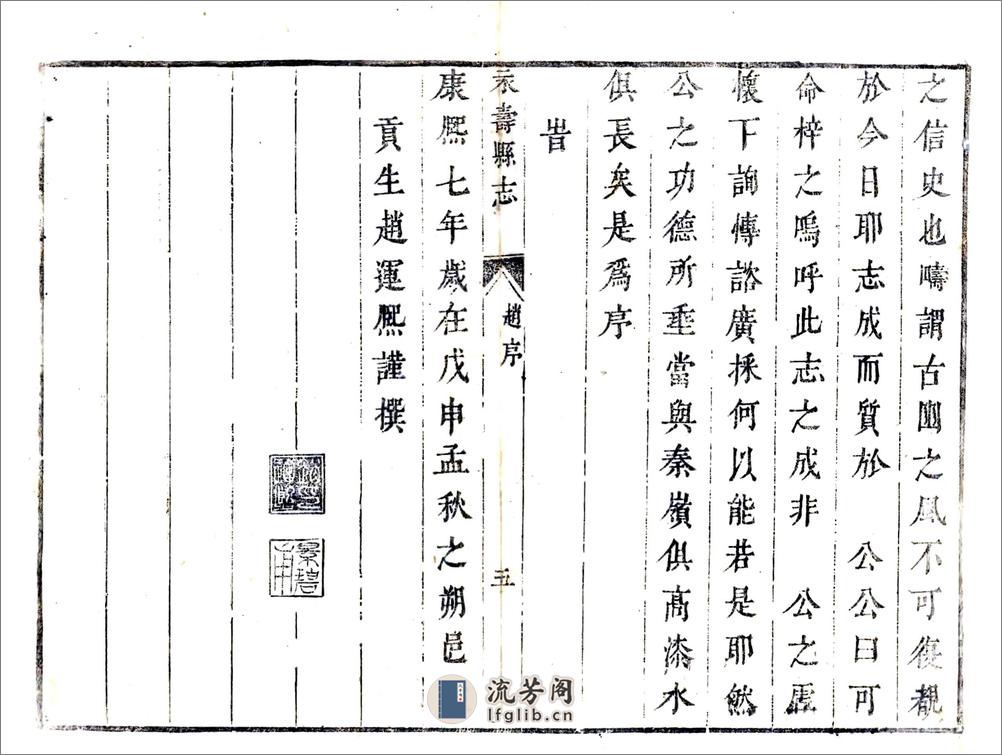 之信史也疇謂古豳之風不可復覩
於今日耶志成而質於　公公曰可
命梓之嗚呼此志之成非　公之虛
懷下詢博諮廣採何以能若是耶然
公之功德所垂當與秦嶺俱高漆水
俱長矣是爲序
旹
永壽縣志　趙序　五
康熙七年歲在戊申孟秋之朔邑
貢生趙運熙謹撰
景碧甫
流芳阁
lfglib.cn